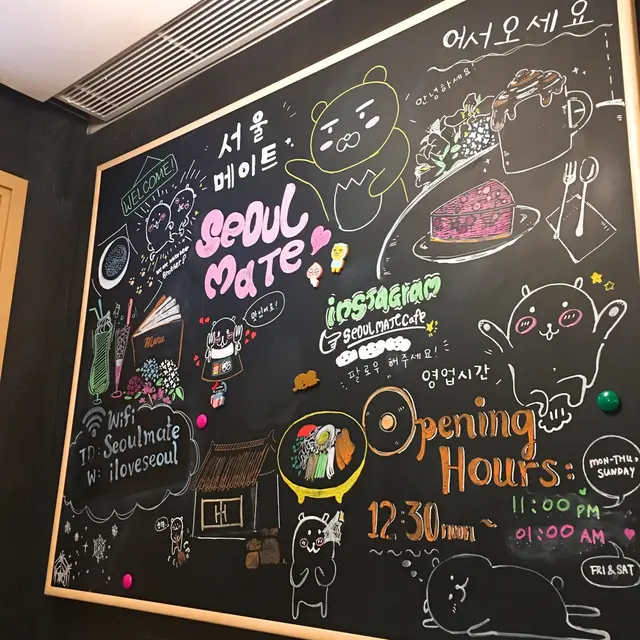 어서오세요
안녕하세요
서울
메이트
WELCOME!
SEOUL
MATE
맛있어요!
INSTAGRAM
SEOULMATECafe
팔로우 해주세요!
Menu
영업시간
Wifi
ID: Seoulmate
W: iloveseoul
Opening
Hours:
MON-THU,
SUNDAY
12:30 noon ~
11:00 PM
01:00 AM
FRI & SAT